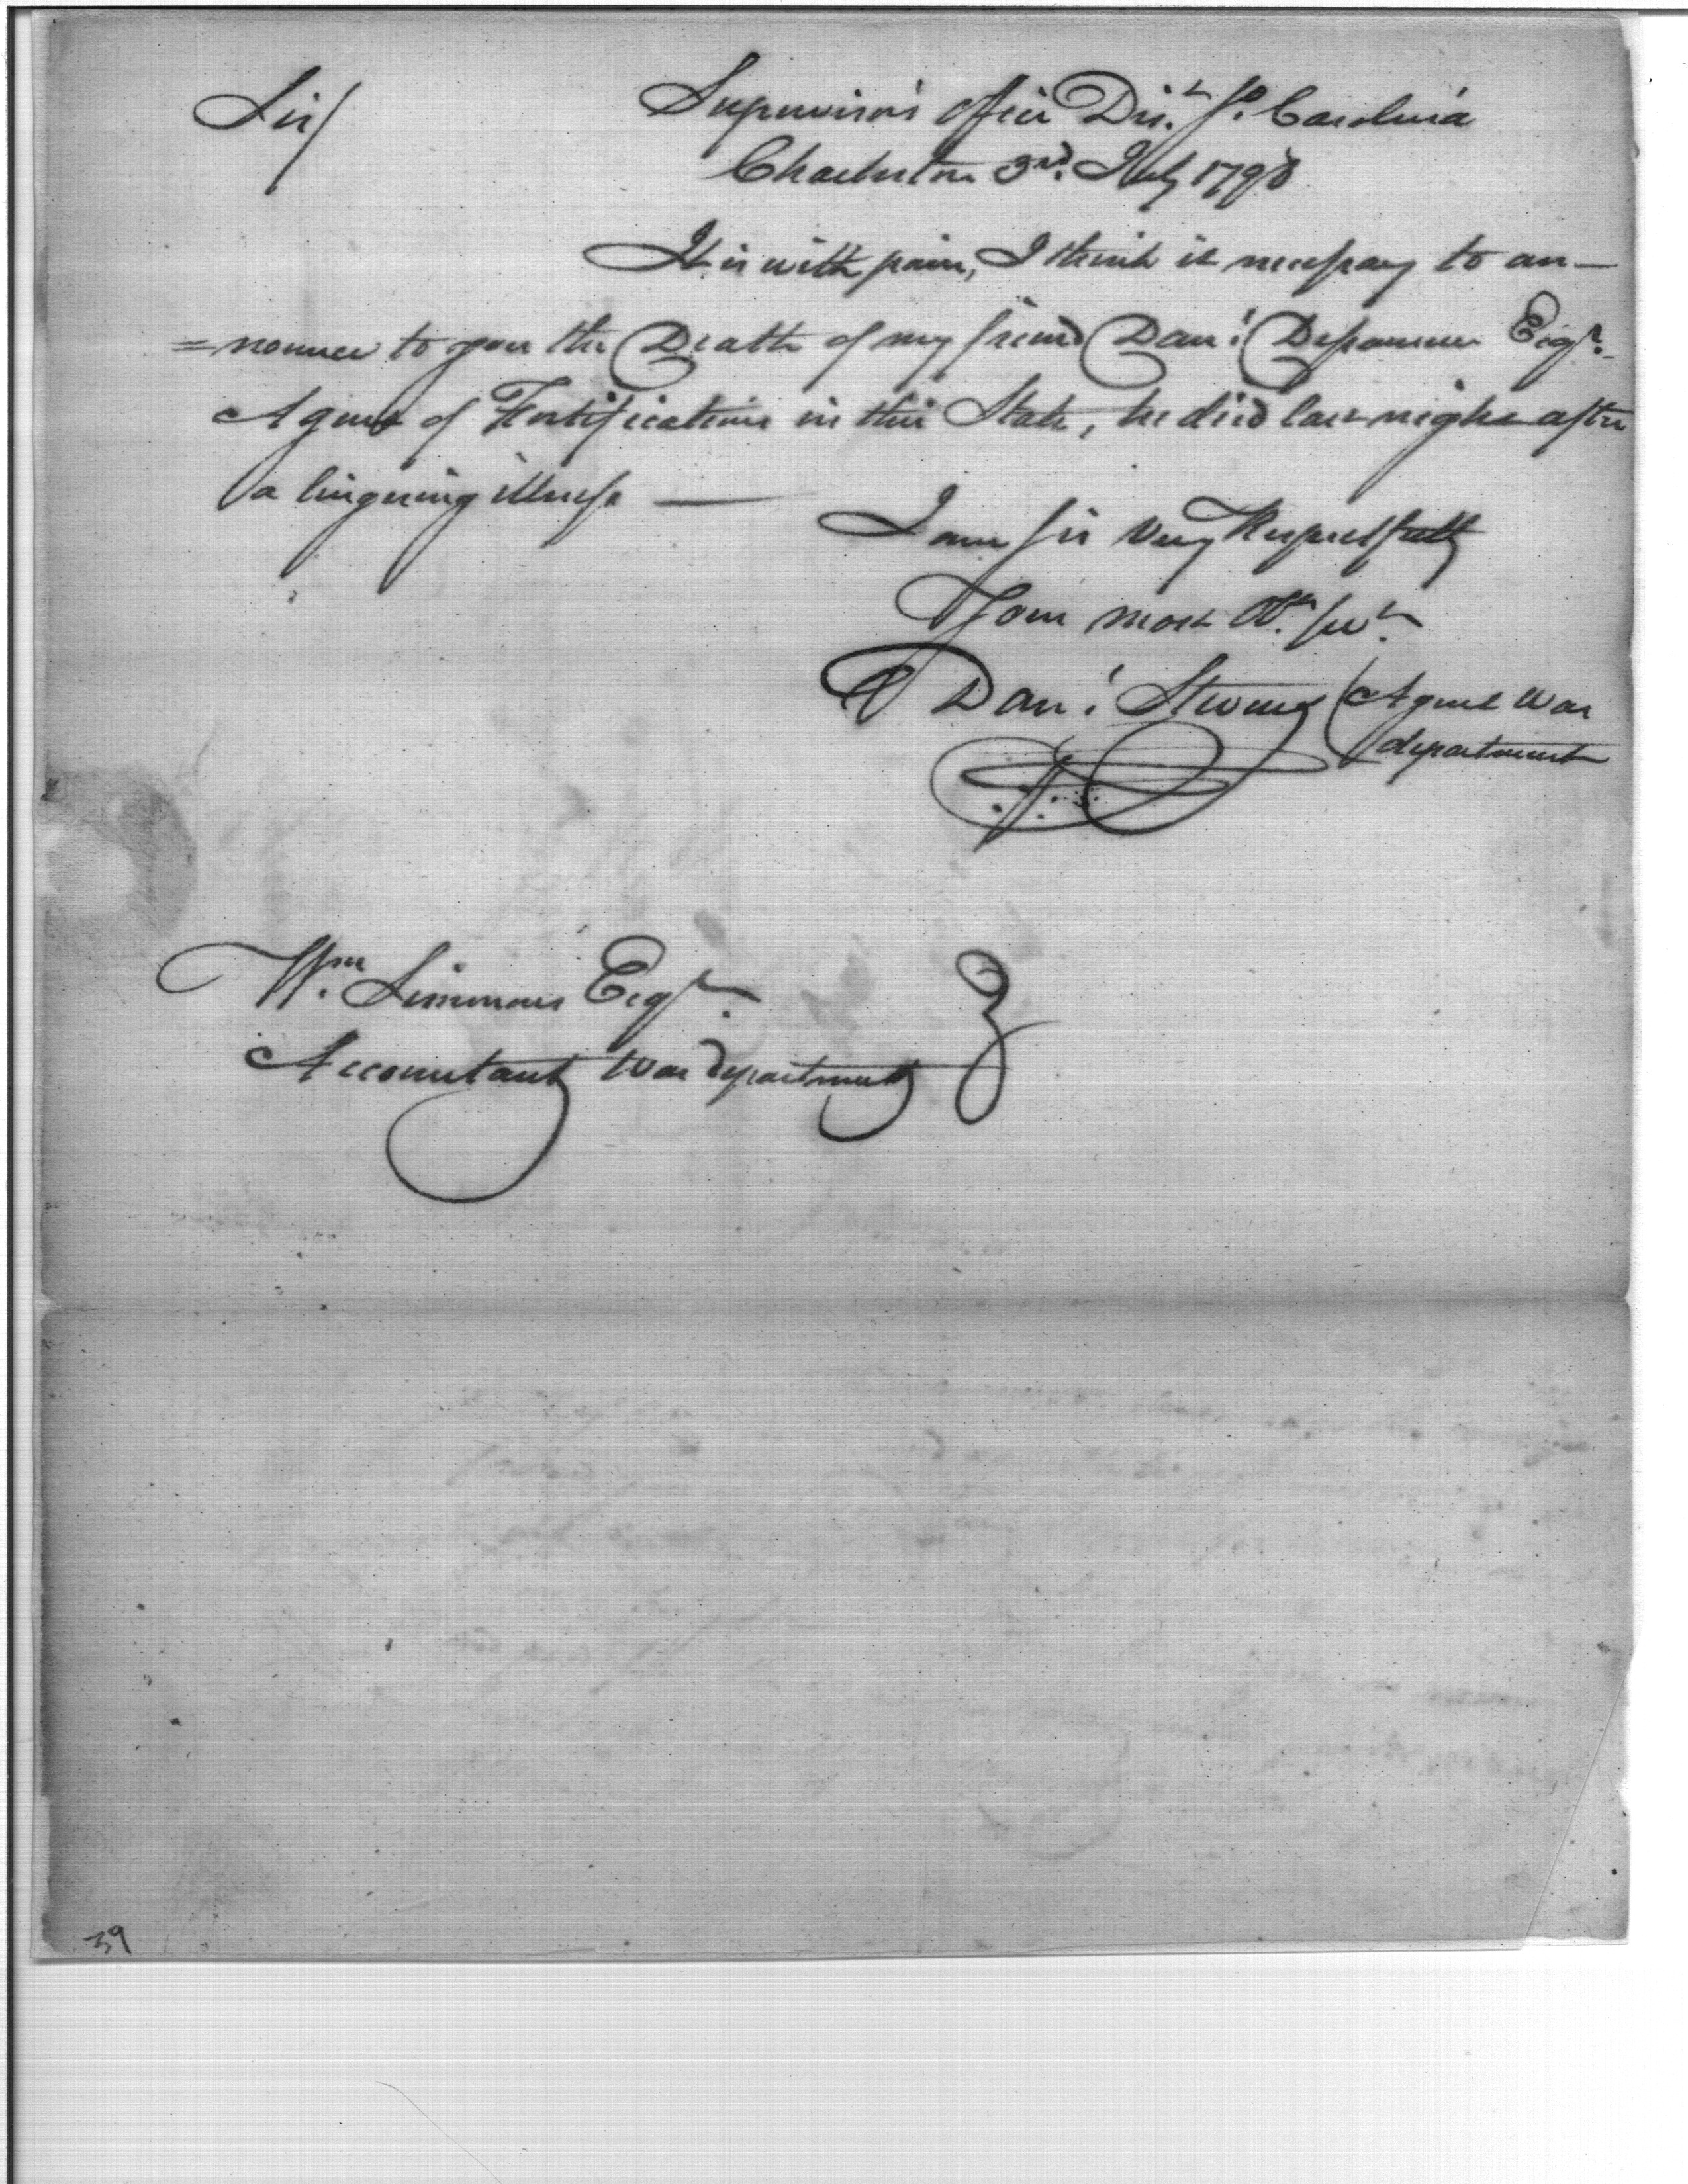 Sir/
Supervisor's office Dis.t So. Carolina
Charleston 3rd. July 1798
It is with pain, I think it necessary to an—
=nounce to you the Death of my friend Danl. Desaussure Esqr.
Agent of Fortifications in this State, he died last night after
a lingering illness —
I am Sir very Respectfully
Your most Obt. Servt.
Danl. Stevens Agent War
department
Wm. Simmons Esqr.
Accountant War department
39